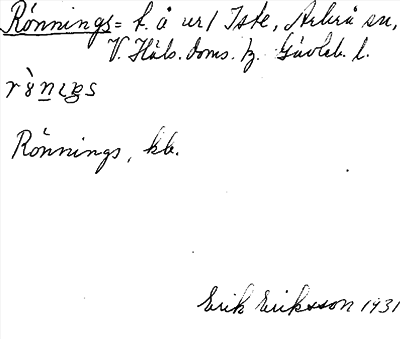 Rönnings = f. å nr 1 Iste, Arbrå sn,
V. Häls. doms. h. Gävleb. l.
Rönnings, kb.
Erik Eriksson 1931